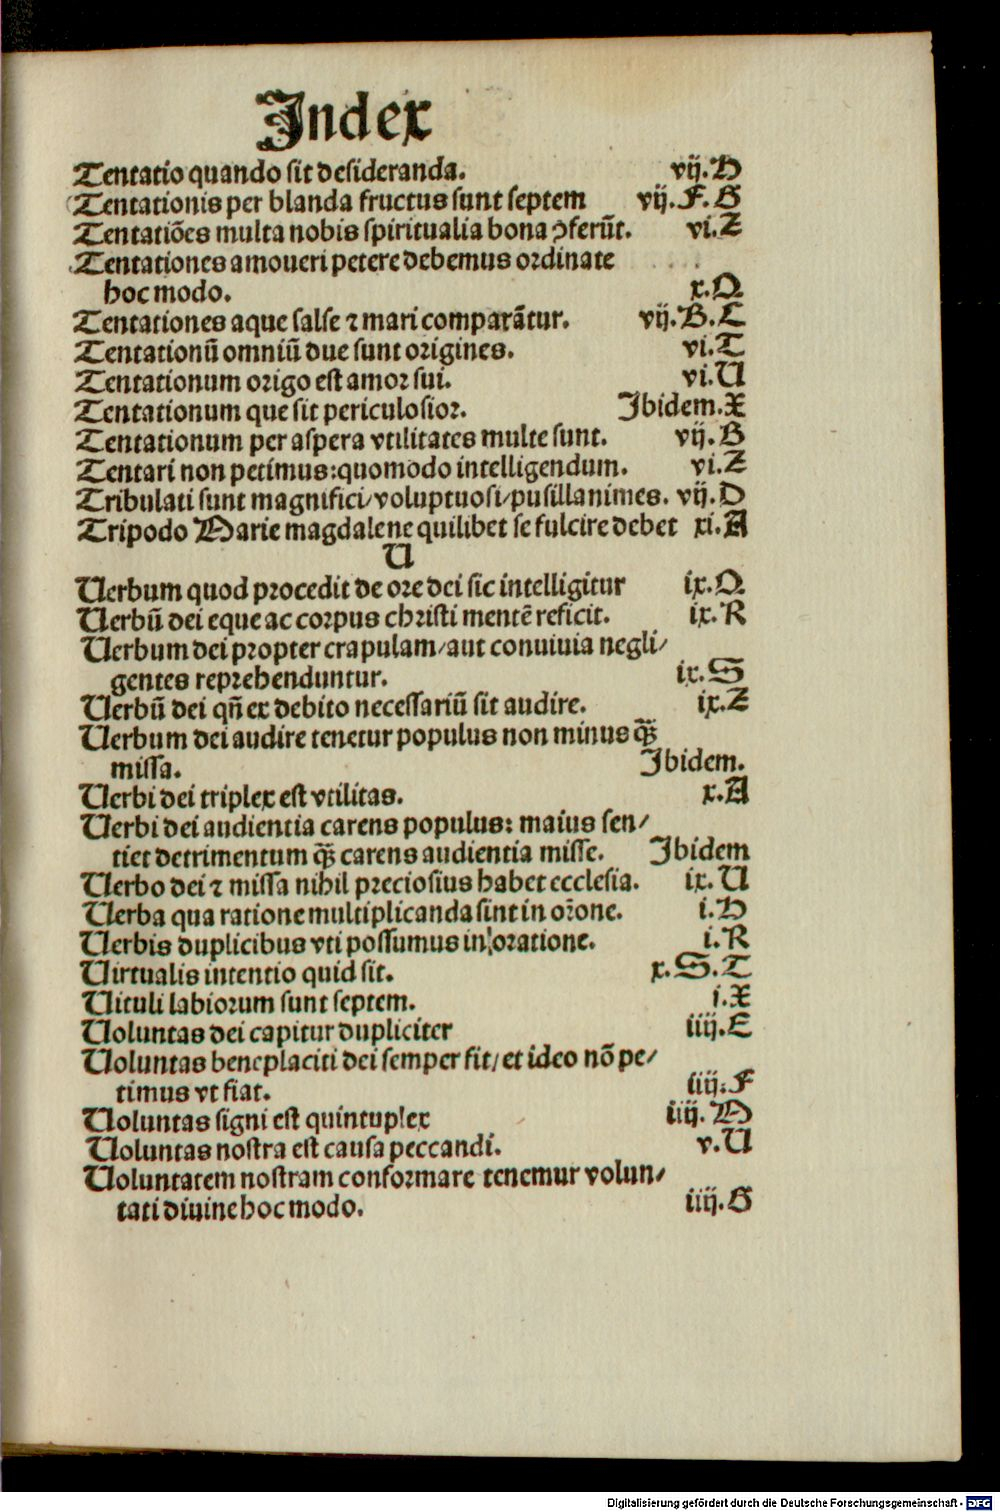 Index
Tentatio quando sit desideranda. vij.H
Tentationis per blanda fructus sunt septem vij.F.G
Tentatiões multa nobis spiritualia bona ꝯferūt. vi.Z
Tentationes amoueri petere debemus ordinate
hoc modo. x.Q
Tentationes aque salse ⁊ mari comparãtur. vij.B.C
Tentationū omniū due sunt origines. vi.T
Tentationum origo est amor sui. vi.U
Tentationum que sit periculosior. Ibidem.X
Tentationum per aspera vtilitates multe sunt. vij.B
Tentari non petimus:quomodo intelligendum. vi.Z
Tribulati sunt magnifici/voluptuosi/pusillanimes. vij.D
Tripodo Marie magdalene quilibet se fulcire debet xi.A
U
Uerbum quod procedit de ore dei sic intelligitur ix.Q
Uerbū dei eque ac corpus christi mentē reficit. ix.R
Uerbum dei propter crapulam/aut conuiuia negli/
gentes reprehenduntur. ix.S
Uerbū dei qñ ex debito necessariū sit audire. ix.Z
Uerbum dei audire tenetur populus non minus q̃ꝫ
missa. Ibidem.
Uerbi dei triplex est vtilitas. x.A
Uerbi dei audientia carens populus: maius sen/
tiet detrimentum q̃ꝫ carens audientia misse. Ibidem
Uerbo dei ⁊ missa nihil preciosius habet ecclesia. ix.U
Uerba qua ratione multiplicanda sint in or̃one. i.H
Uerbis duplicibus vti possumus in oratione. i.R
Uirtualis intentio quid sit. x.S.T
Uituli labiorum sunt septem. i.X
Uoluntas dei capitur dupliciter iiij.E
Uoluntas beneplaciti dei semper fit/et ideo nõ pe/
timus vt fiat. iiij.F
Uoluntas signi est quintuplex iiij.M
Uoluntas nostra est causa peccandi. v.U
Uoluntatem nostram conformare tenemur volun/
tati diuine hoc modo. iiij.G
Digitalisierung gefördert durch die Deutsche Forschungsgemeinschaft - DFG